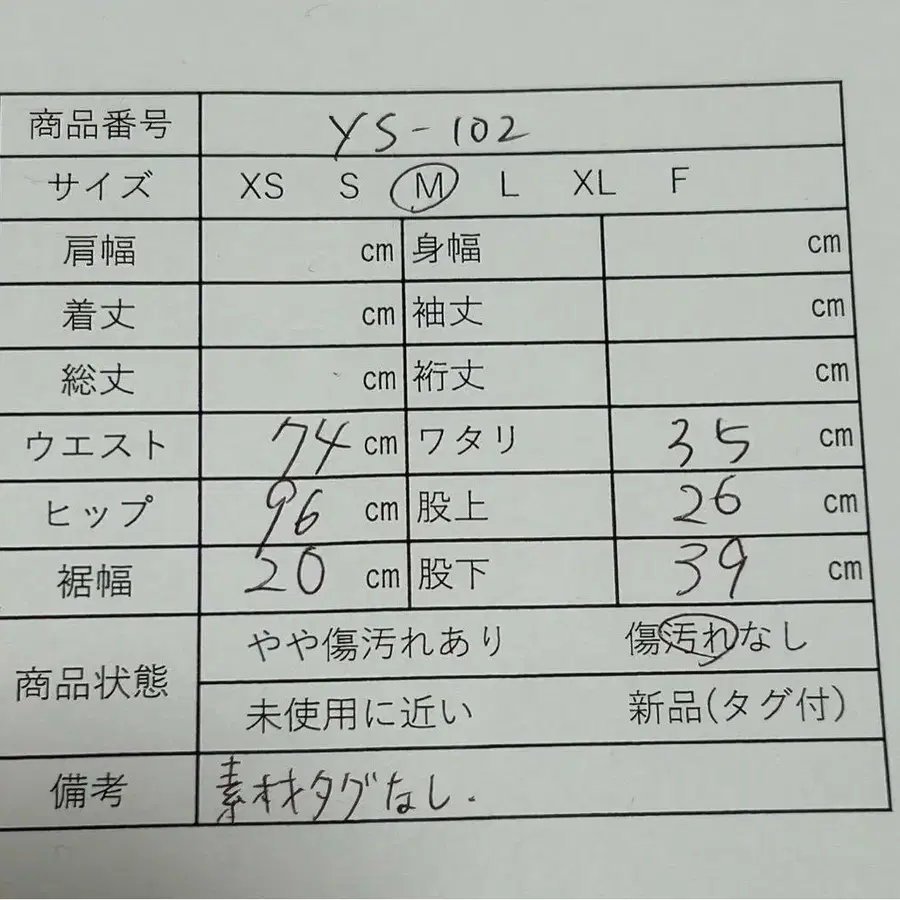 商品番号 YS-102
サイズ XS S M L XL F
肩幅 cm 身幅 cm
着丈 cm 袖丈 cm
総丈 cm 裄丈 cm
ウエスト 74 cm ワタリ 35 cm
ヒップ 96 cm 股上 26 cm
裾幅 20 cm 股下 39 cm
商品状態 やや傷汚れあり 傷汚れなし
未使用に近い 新品(タグ付)
備考 素材タグなし.